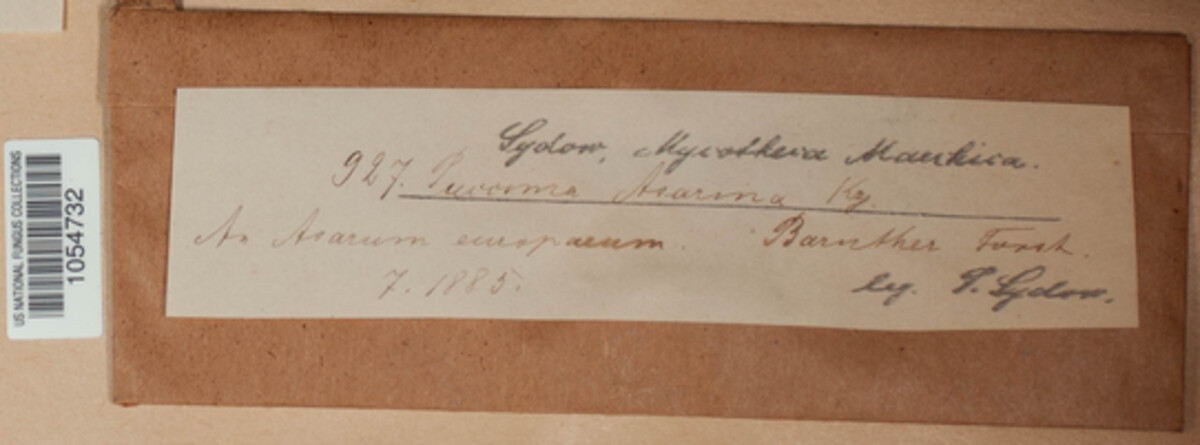 US NATIONAL FUNGUS COLLECTIONS
1054732
Sydow, Mycotheca Marchica.
927. Puccinia Asarina Kz.
An Asarum europaeum. Barnther Forst.
7. 1885.
leg. P. Sydow.